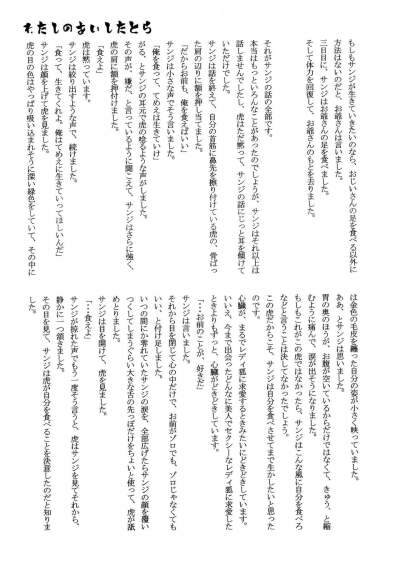 わたしのあいしたとら
もしもサンジが生きていきたいのなら、おじいさんの足を食べる以外に
方法はないのだと、お爺さんは言いました。
三日目に、サンジはお爺さんの足を食べました。
そして体力を回復して、お爺さんのもとを去りました。
それがサンジの話の全部です。
本当はもっといろんなことがあったのでしょうが、サンジはそれ以上は
話しませんでしたし、虎はただ黙って、サンジの話にじっと耳を傾けて
いただけでした。
サンジは話を終えて、自分の首筋に鼻先を擦り付けている虎の、骨ばっ
た肩の辺りに額を押し当てました。
「だからお前も、俺を食えばいい」
サンジは小さな声でそう言いました。
「俺を食って、そんで生きていけ」
がる、とサンジの耳元で虎の唸るような声がしました。
その声が、嫌だ、と言っているように聞こえて、サンジはさらに強く、
虎の肩に額を押付けました。
「食えよ」
虎は黙っています。
サンジは絞り出すような声で、続けました。
「食って、生きてくれよ。俺はてめえに生きていってほしいんだ」
サンジは顔を上げて虎を見ました。
虎の目の色はやっぱり吸い込まれそうに深い緑色をしていて、その中に
は金色の毛皮を纏った自分の姿が小さく映っていました。
ああ、とサンジは思いました。
胃の奥のほうが、お腹が空いているからだけではなくて、きゅう、と縮
むように痛んで、涙が出そうになりました。
もしもこれがこの虎ではなかったら、サンジはこんな風に自分を食べろ
などと言うことは決してなかったでしょう。
この虎だからこそ、サンジは自分を食べさせてまで生かしたいと思った
のです。
心臓が、まるでレディ狐に求愛するときみたいにどきどきしています。
いいえ、今まで出会ったどんなに美人でセクシーなレディ狐に求愛した
ときよりもずっと、心臓がどきどきしています。
「…お前のことが、好きだ」
サンジは言いました。
それから目を閉じて心の中だけで、お前がゾロでも、ゾロじゃなくても
いい、と付け足しました。
いつの間にか零れていたサンジの涙を、全部広げたらサンジの顔を覆い
つくしてしまうぐらい大きな舌の先っぽだけをちょいと使って、虎が舐
めとりました。
サンジは目を開けて、虎を見ました。
「…食えよ」
サンジが掠れた声でもう一度そう言うと、虎はサンジを見てそれから、
静かに一つ頷きました。
その目を見て、サンジは虎が自分を食べることを決意したのだと知りま
した。